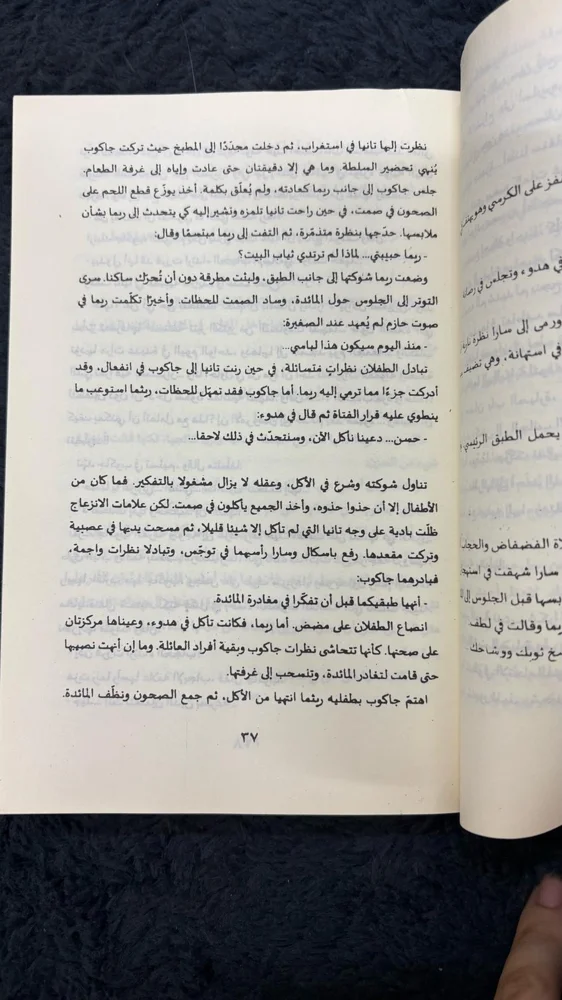 نظرت إليها تانيا في استغراب، ثم دخلت مجددًا إلى المطبخ حيث تركت جاكوب
يُنهي تحضير السلطة. وما هي إلا دقيقتان حتى عادت وإياه إلى غرفة الطعام.
جلس جاكوب إلى جانب ريما كعادته، ولم يُعلّق بكلمة. أخذ يوزّع قطع اللحم على
الصحون في صمت، في حين راحت تانيا تلمزه وتشير إليه كي يتحدث إلى ريما بشأن
ملابسها. حدّجها بنظرة متذمّرة، ثم التفت إلى ريما مبتسمًا وقال:
- ريما حبيبتي... لماذا لم ترتدي ثياب البيت؟
وضعت ريما شوكتها إلى جانب الطبق، ولبثت مطرقة دون أن تُحرّك ساكنا. سرى
التوتر إلى الجلوس حول المائدة، وساد الصمت للحظات. وأخيرًا تكلّمت ريما في
صوت حازم لم يُعهد عند الصغيرة:
- منذ اليوم سيكون هذا لباسي...
تبادل الطفلان نظراتٍ مُتسائلة، في حين رنت تانيا إلى جاكوب في انفعال، وقد
أدركت جزءًا مما ترمي إليه ريما. أما جاكوب فقد تمهّل للحظات، ريثما استوعب ما
ينطوي عليه قرار الفتاة ثم قال في هدوء:
- حسن... دعينا نأكل الآن، وسنتحدّث في ذلك لاحقا...
تناول شوكته وشرع في الأكل، وعقله لا يزال مشغولا بالتفكير. فما كان من
الأطفال إلا أن حذوا حذوه، وأخذ الجميع يأكلون في صمت. لكن علامات الانزعاج
ظلّت بادية على وجه تانيا التي لم تأكل إلا شيئا قليلا، ثم مسحت يديها في عصبية
وتركت مقعدها. رفع باسكال وسارا رأسيهما في توجّس، وتبادلا نظرات واجمة،
فبادرهما جاكوب:
- أنهيا طبقيكما قبل أن تفكّرا في مغادرة المائدة.
انصاع الطفلان على مضض. أما ريما، فكانت تأكل في هدوء، وعيناها مركزتان
على صحنها. كأنها تتحاشى نظرات جاكوب وبقية أفراد العائلة. وما إن أنهت نصيبها
حتى قامت لتغادر المائدة، وتنسحب إلى غرفتها.
اهتمّ جاكوب بطفليه ريثما انتهيا من الأكل، ثم جمع الصحون ونظّف المائدة.
٣٧
على الكرسي
في هدوء وتجلس في
إلى سارا نظرة
في استهانة. وهي
يحمل الطبق الرئيسي
الفضفاض
سارا شهقت في
قبل الجلوس إلى
وقالت في لطف
ثوبك ووشاحك